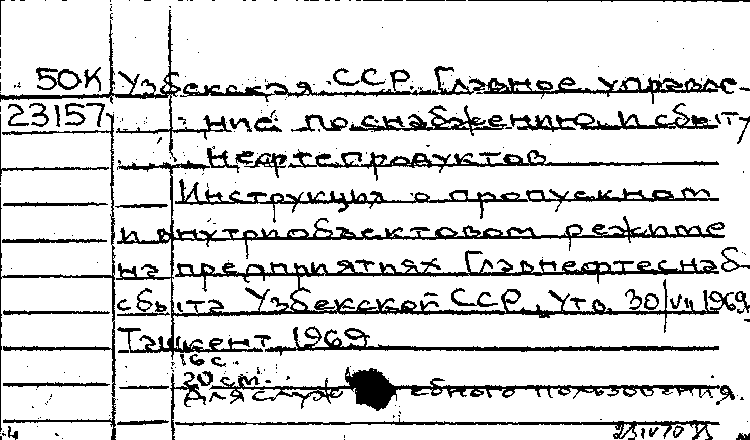 50К Узбекская ССР. Главное управле-
23157 ние по снабжению и сбыту
нефтепродуктов
Инструкция о пропускном
и внутриобъектовом режиме
на предприятиях Главнефтеснаб-
сбыта Узбекской ССР. Утв. 30/VII 1969.
Ташкент, 1969.
16 с.
20 см.
Для служебного пользования.